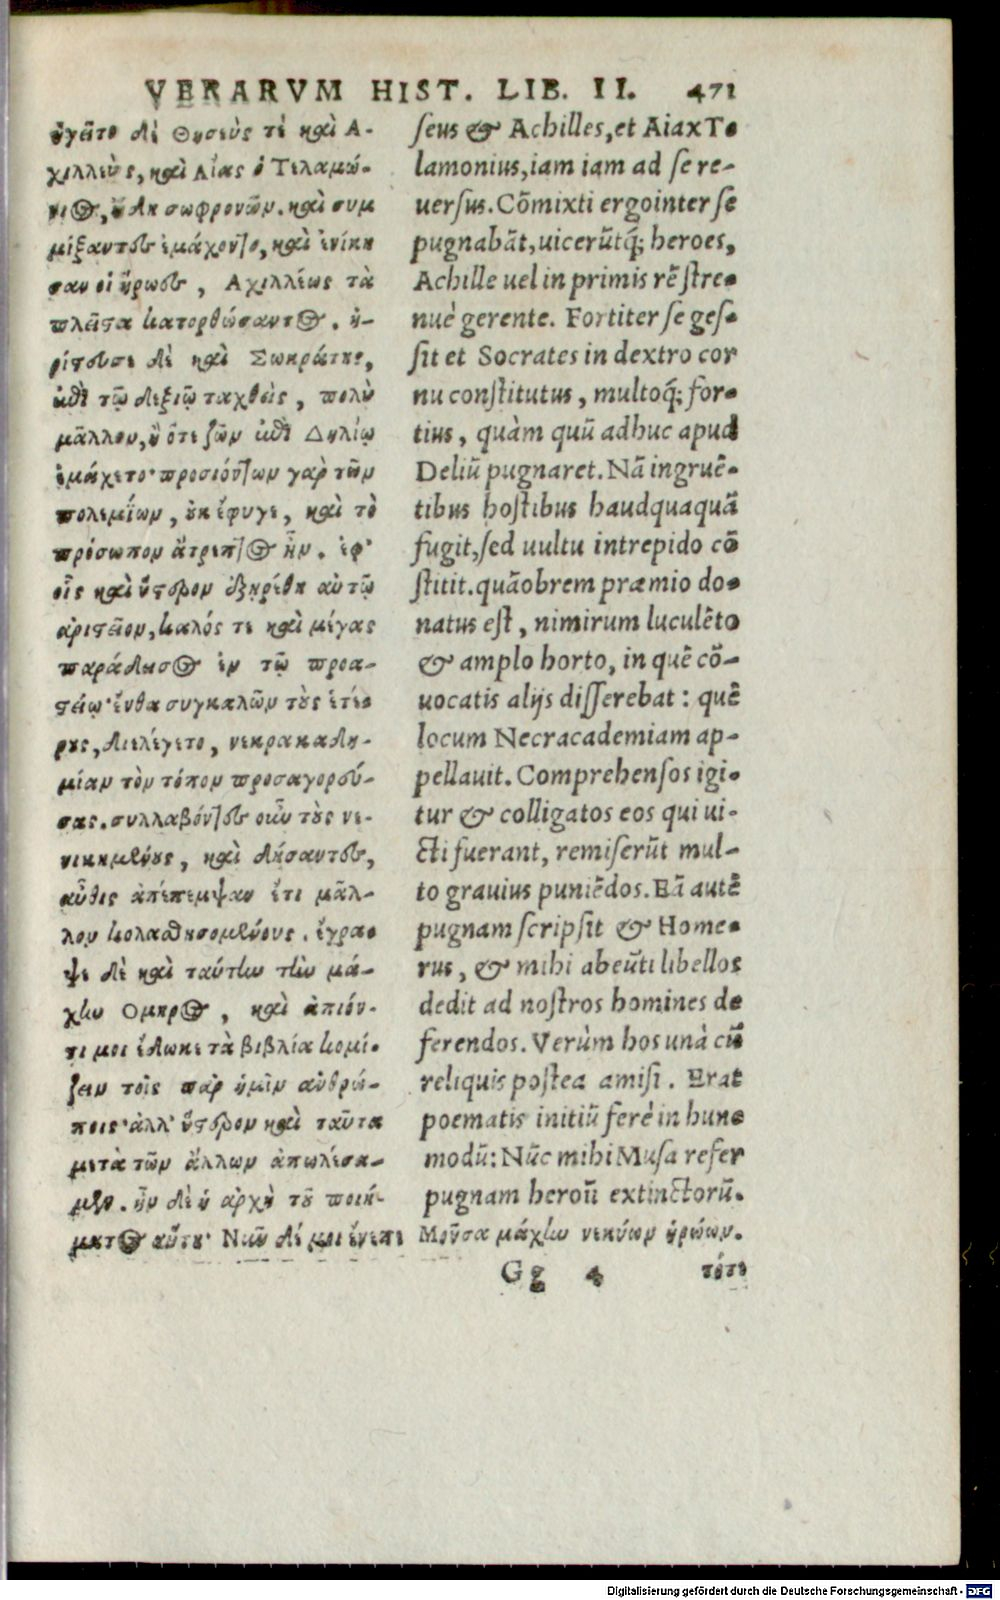 VERARVM HIST. LIB. II. 471
ἡγεῖτο δὲ Θησεύς τε καὶ Α-
χιλλεὺς, καὶ Αἴας ὁ Τελαμώ-
νιος, ἤδη σωφρονῶν. καὶ συμ
μίξαντες ἐμάχοντο, καὶ ἐνίκη
σαν οἱ ἥρωες, Αχιλλέως τὰ
πλεῖστα κατορθώσαντος. ἠ-
ρίστευσε δὲ καὶ Σωκράτης,
ἐπὶ τῷ δεξιῷ ταχθεὶς, πολὺ
μᾶλλον, ἢ ὅτε ζῶν ἐπὶ Δηλίῳ
ἐμάχετο· προσιόντων γὰρ τῶν
πολεμίων, οὐκ ἔφυγε, καὶ τὸ
πρόσωπον ἄτρεπτος ἦν. ἐφ'
οἷς καὶ ὕστερον ἐξῃρέθη αὐτῷ
ἀριστεῖον, καλός τε καὶ μέγας
παράδεισος ἐν τῷ προα-
στείῳ· ἔνθα συγκαλῶν τοὺς ἑταί-
ρους, διελέγετο, νεκρακαδη-
μίαν τὸν τόπον προσαγορεύ-
σας. συλλαβόντες οὖν τοὺς νε-
νικημένους, καὶ δήσαντες,
αὖθις ἀπέπεμψαν ἔτι μᾶλ-
λον κολασθησομένους. ἔγρα-
ψε δὲ καὶ ταύτην τὴν μά-
χην Ομηρος, καὶ ἀπιόν-
τι μοι ἔδωκε τὰ βιβλία κομί-
ζειν τοῖς παρ ἡμῖν ἀνθρώ-
ποις· ἀλλ' ὕστερον καὶ ταῦτα
μετὰ τῶν ἄλλων ἀπωλέσα-
μεν. ἦν δὲ ἡ ἀρχὴ τοῦ ποιή-
ματος αὕτη· Νῦν δέ μοι ἔνεπε
seus & Achilles, et Aiax Te
lamonius, iam iam ad se re-
uersus. Cōmixti ergo inter se
pugnabāt, uicerūtq́; heroes,
Achille uel in primis rē stre-
nuè gerente. Fortiter se ges-
sit et Socrates in dextro cor
nu constitutus, multoq́; for-
tius, quàm quū adhuc apud
Deliū pugnaret. Nā ingruē-
tibus hostibus haudquaquā
fugit, sed uultu intrepido cō
stitit. quāobrem præmio do-
natus est, nimirum luculēto
& amplo horto, in quē cō-
uocatis alijs disserebat: quē
locum Necracademiam ap-
pellauit. Comprehensos igi-
tur & colligatos eos qui ui-
cti fuerant, remiserūt mul-
to grauius puniēdos. Eā autē
pugnam scripsit & Home-
rus, & mihi abeūti libellos
dedit ad nostros homines de
ferendos. Verùm hos unà cū
reliquis postea amisi. Erat
poematis initiū ferè in hunc
modū: Nūc mihi Musa refer
pugnam heroū extinctorū.
Μοῦσα μάχην νεκύων ἡρώων.
Gg 4 τότε
Digitalisierung gefördert durch die Deutsche Forschungsgemeinschaft - DFG